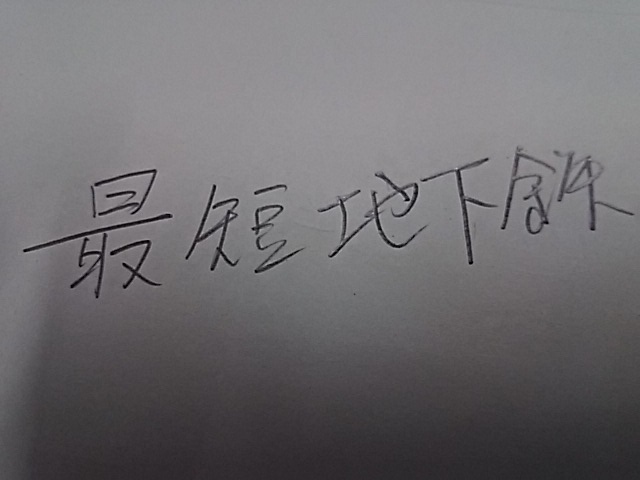 最短地下鉄